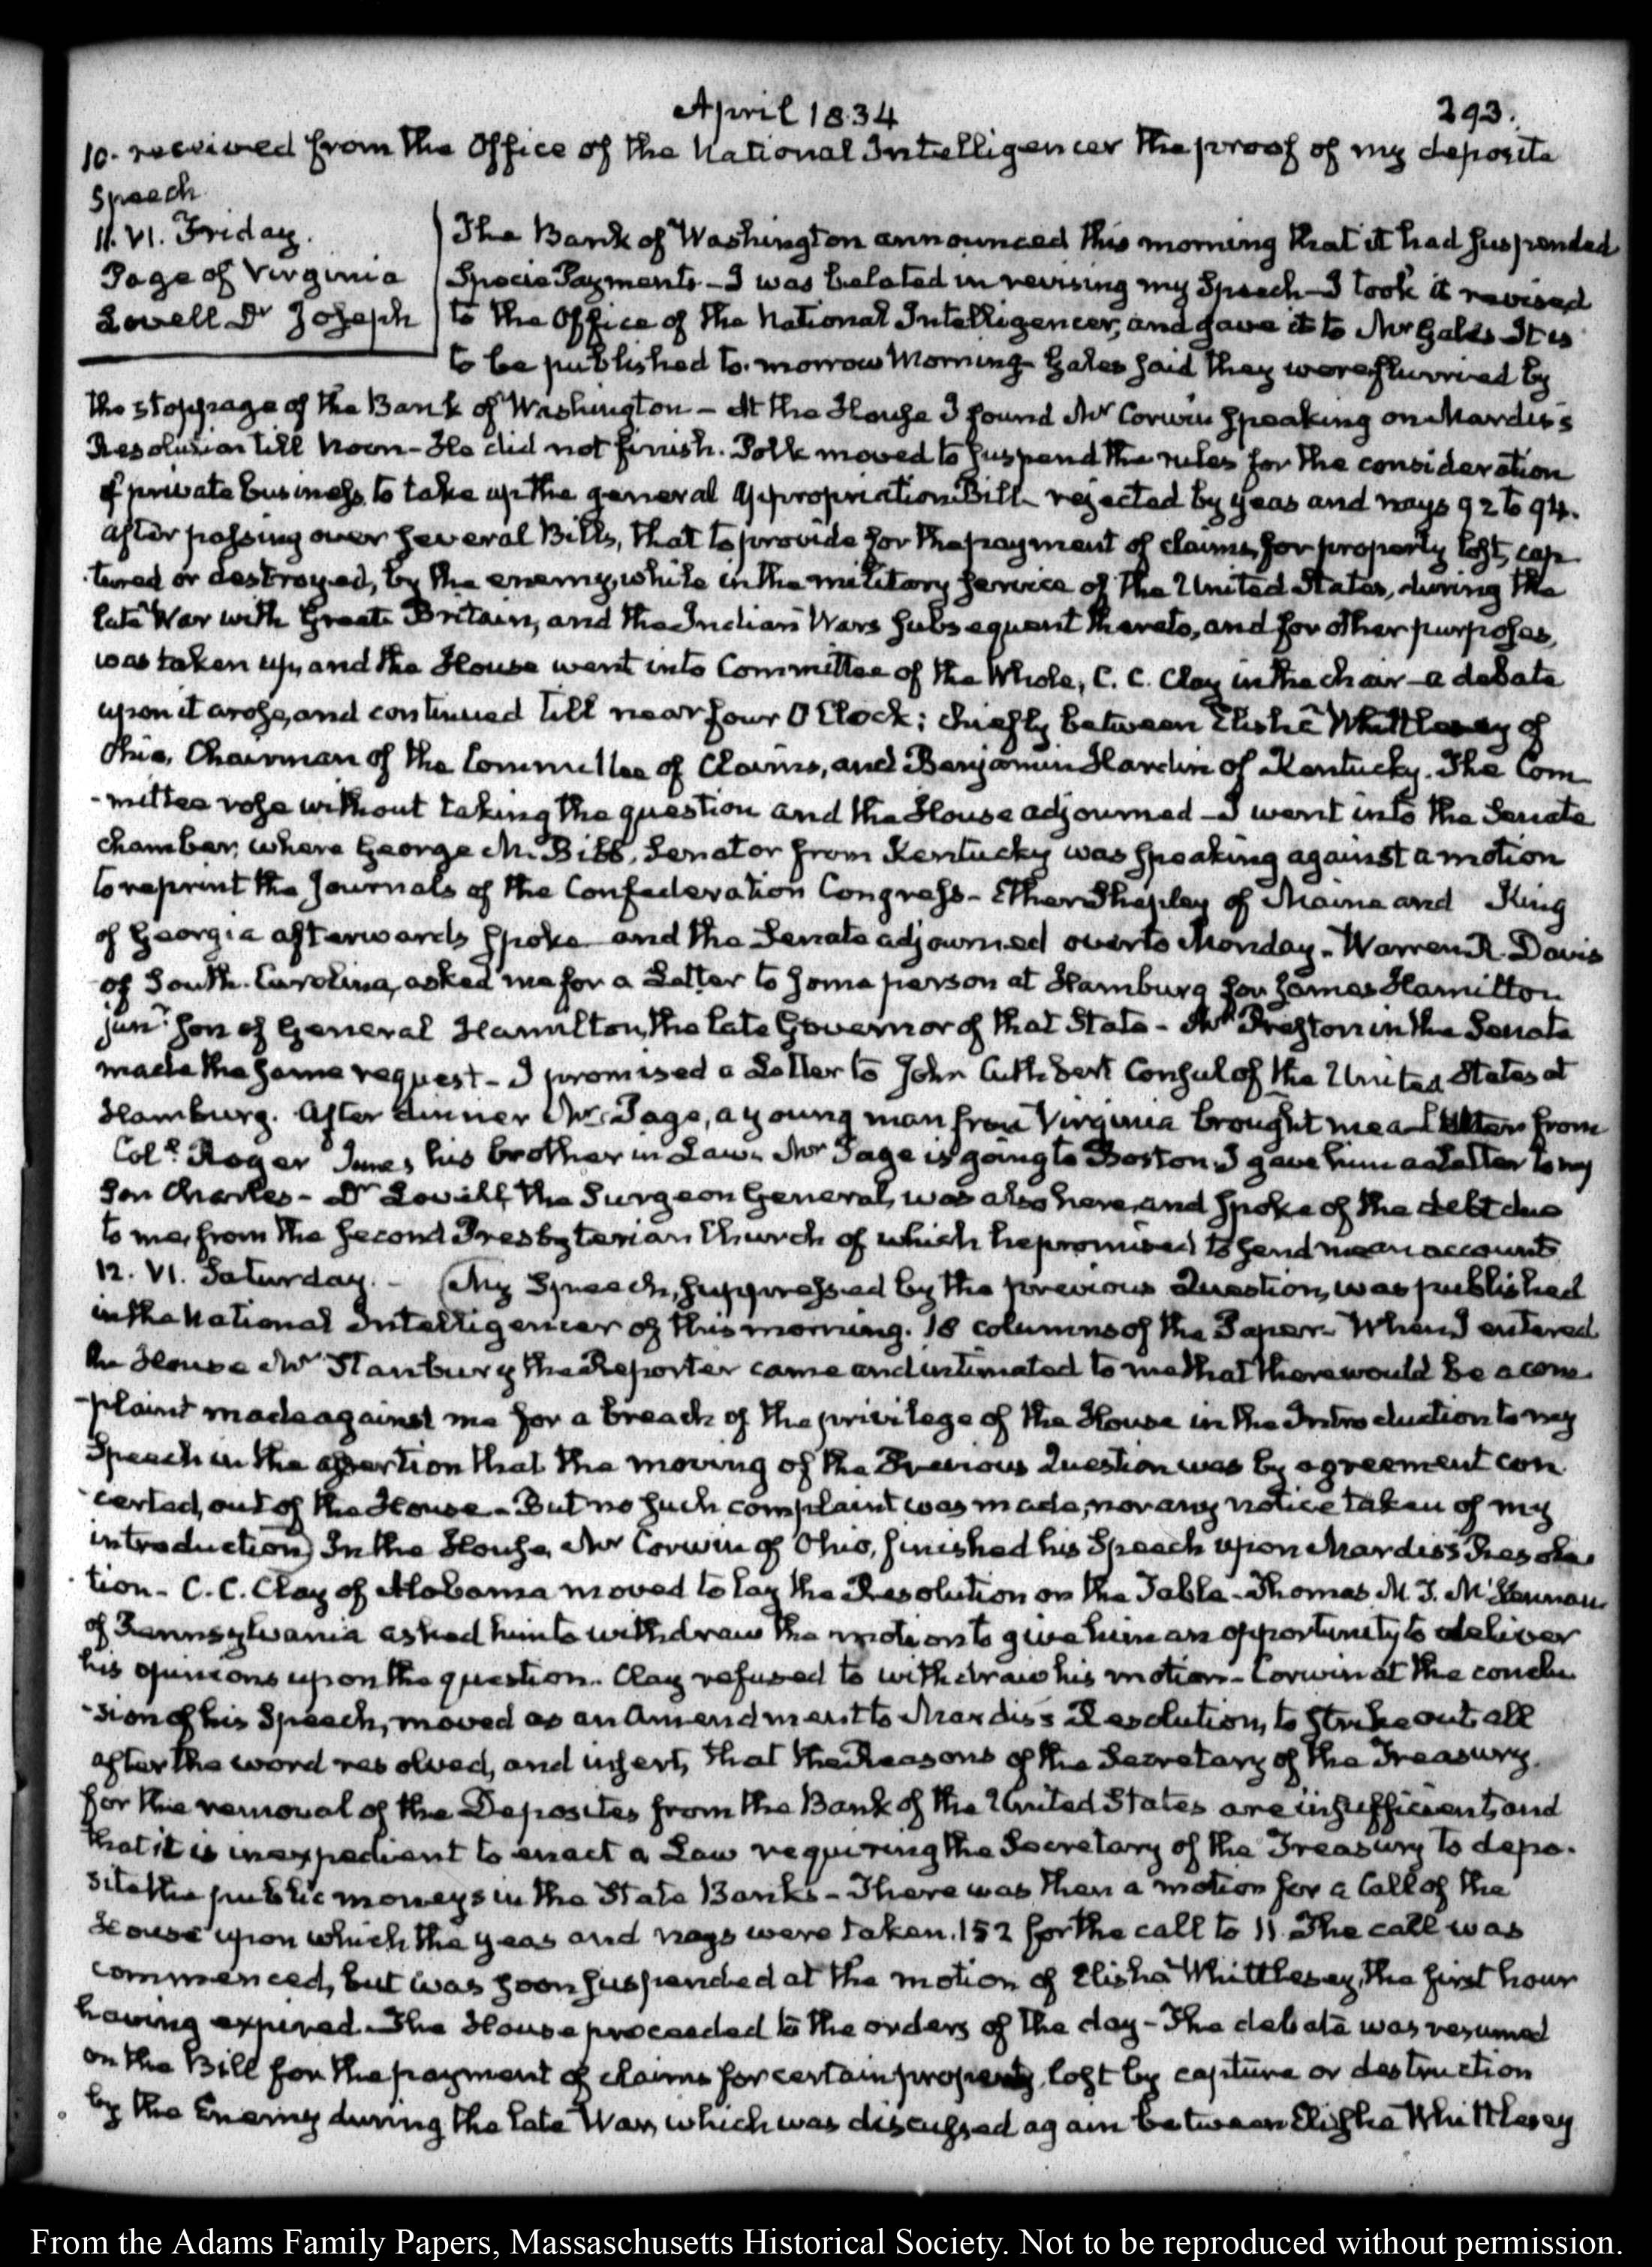 April 1834
293.
10. received from the Office of the National Intelligencer the proof of my deposite
Speech
11. VI. Friday.
Page of Virginia
Lovell Dr Joseph
The Bank of Washington announced this morning that it had suspended
Specie Payments - I was belated in revising my Speech - I took it revised
to the Office of the National Intelligencer, and gave it to Mr Gales - It is
to be published to-morrow Morning - Gales said they were flurried by
the stoppage of the Bank of Washington - At the House I found Mr Corwin speaking on Mardis's
Resolution till Noon - He did not finish. Polk moved to suspend the rules for the consideration
of private business, to take up the general Appropriation Bill - rejected by yeas and nays 92 to 94.
After passing over several Bills, that to provide for the payment of claims, for property lost, cap
-tured or destroyed, by the enemy, while in the military service of the United States, during the
late War with Great Britain, and the Indian Wars subsequent thereto, and for other purposes,
was taken up, and the House went into Committee of the Whole, C. C. Clay in the chair - a debate
upon it arose, and continued till near four O'Clock; chiefly between Elisha Whittlesey of
Ohio, Chairman of the Committee of Claims, and Benjamin Hardin of Kentucky. The Com
-mittee rose without taking the question and the House adjourned - I went into the Senate
chamber, where George M. Bibb, Senator from Kentucky was speaking against a motion
to reprint the Journals of the Confederation Congress - Ether Shepley of Maine and King
of Georgia afterwards spoke and the Senate adjourned over to Monday - Warren R. Davis
of South-Carolina, asked me for a Letter to some person at Hamburg for James Hamilton
junr. son of General Hamilton, the late Governor of that State - Mr Preston in the Senate
made the same request - I promised a Letter to John Cuthbert Consul of the United States at
Hamburg. After dinner Mr Page, a young man from Virginia brought me a Letter from
Coll. Roger Jones, his brother in Law. Mr Page is going to Boston. I gave him a Letter to my
Son Charles - Dr Lovell, the Surgeon General, was also here, and spoke of the debt due
to me, from the second Presbyterian Church of which he promised to send me an account.
12. VI. Saturday. - (My Speech, suppressed by the previous Question, was published
in the National Intelligencer of this morning. 18 columns of the Paper - When I entered
the House Mr Stanbury the Reporter came and intimated to me that there would be a com-
-plaint made against me for a breach of the privilege of the House in the Introduction to my
Speech in the assertion that the moving of the Previous Question was by agreement con
-certed, out of the House - But no such complaint was made, nor any notice taken of my
introduction) In the House, Mr Corwin of Ohio, finished his Speech upon Mardis's Resolu-
-tion - C. C. Clay of Alabama moved to lay the Resolution on the Table - Thomas M. T. McKennan
of Pennsylvania asked him to withdraw the motion to give him an opportunity to deliver
his opinions upon the question. Clay refused to withdraw his motion - Corwin at the conclu
-sion of his Speech, moved as an Amendment to Mardis's Resolution, to strike out all
after the word resolved, and insert, that the Reasons of the Secretary of the Treasury
for the removal of the Deposites from the Bank of the United States are insufficient, and
that it is inexpedient to enact a Law requiring the Secretary of the Treasury to depo-
site the public moneys in the State Banks - There was then a motion for a Call of the
House upon which the yeas and nays were taken. 152 for the call to 11. The call was
commenced, but was soon suspended at the motion of Elisha Whittlesey, the first hour
having expired. The House proceeded to the orders of the day - The debate was resumed
on the Bill for the payment of claims for certain property, lost by capture or destruction
by the Enemy during the late War, which was discussed again between Elisha Whittlesey
From the Adams Family Papers, Massachusetts Historical Society. Not to be reproduced without permission.